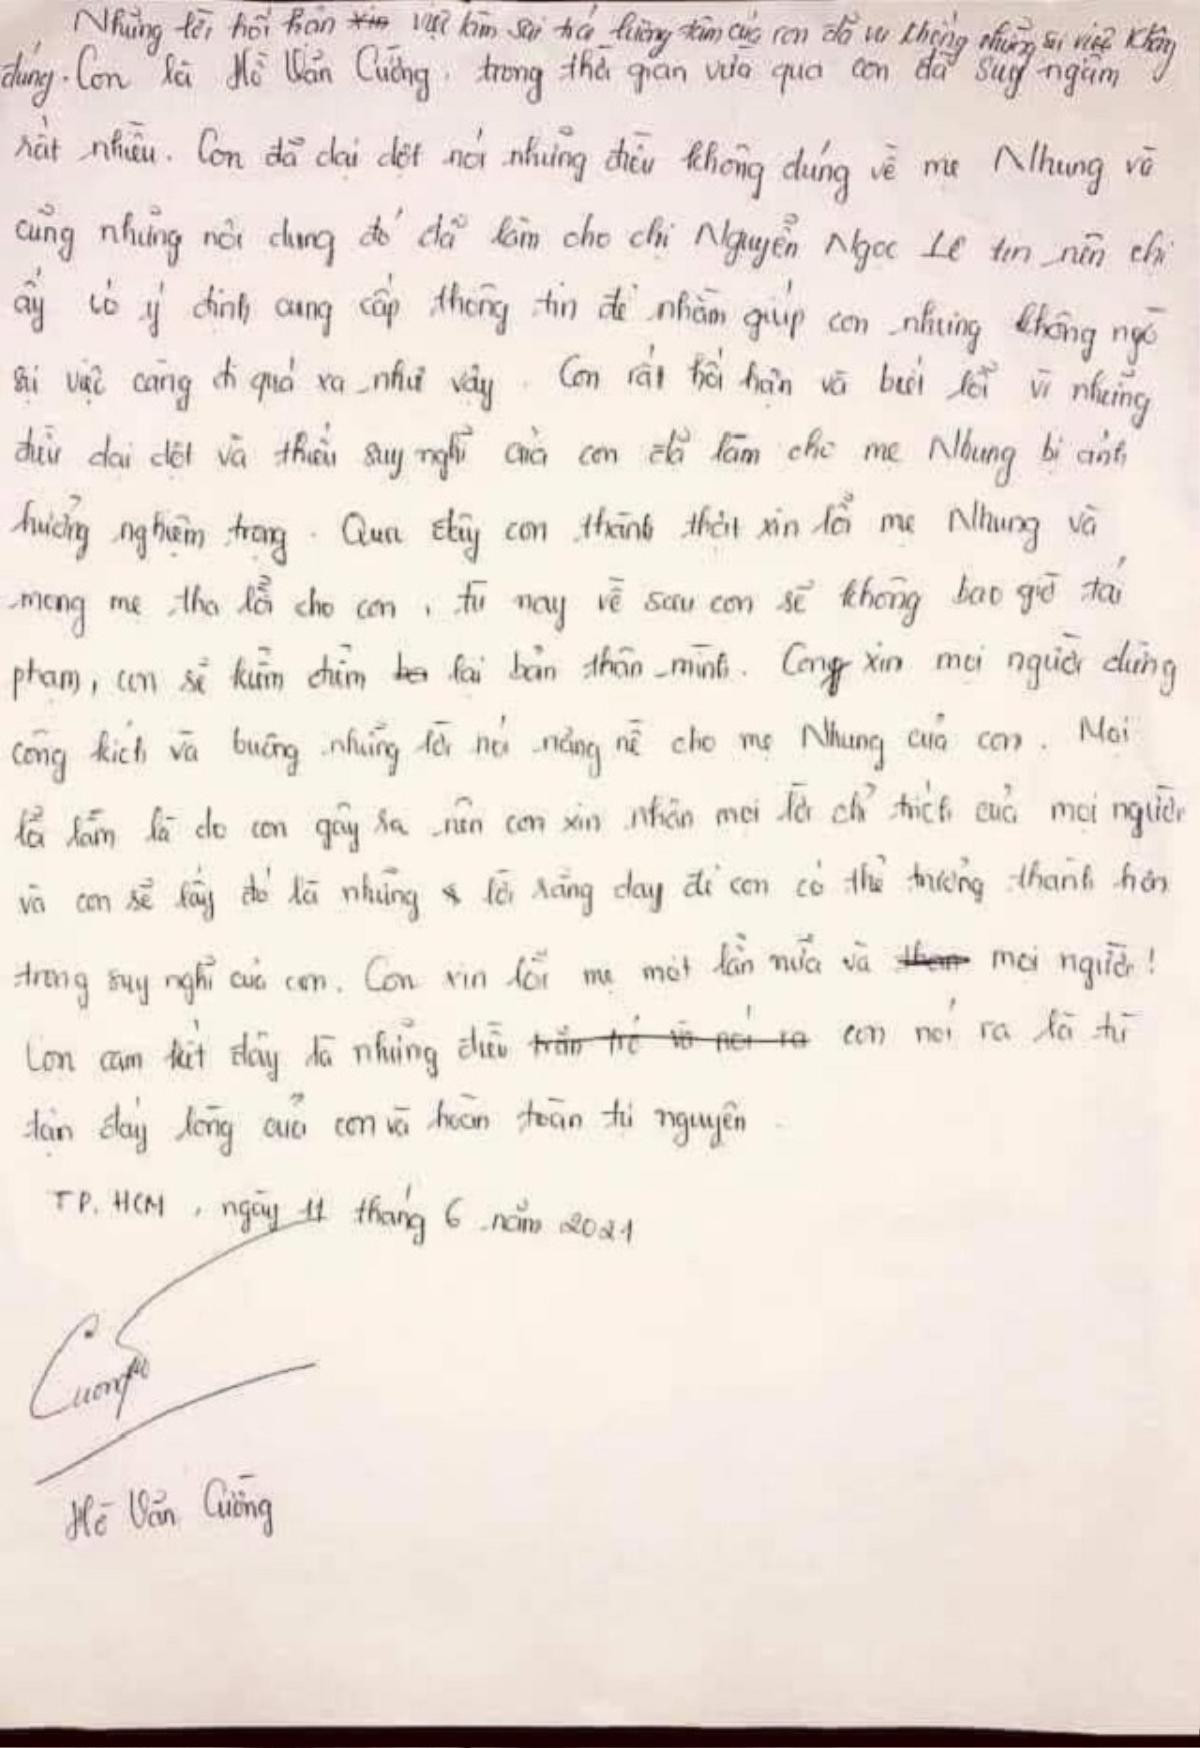 Những lời hối hận xin việc làm sai trái lương tâm của con đã vu khống những sự việc không
đúng. Con là Hồ Văn Cường, trong thời gian vừa qua con đã suy ngẫm
rất nhiều. Con đã dại dột nói những điều không đúng về mẹ Nhung và
cũng những nội dung đó đã làm cho chị Nguyễn Ngọc Lê tin nên chị
ấy có ý định cung cấp thông tin để nhằm giúp con nhưng không ngờ
sự việc càng đi quá xa như vậy. Con rất hối hận và bứt lỗi vì những
điều dại dột và thiếu suy nghĩ của con đã làm cho mẹ Nhung bị ảnh
hưởng nghiệm trọng. Qua đây con thành thật xin lỗi mẹ Nhung và
mong mẹ tha lỗi cho con, từ nay về sau con sẽ không bao giờ tái
phạm, con sẽ kiểm điểm lại bản thân mình. Cong xin mọi người dừng
công kích và buông những lời nói nặng nề cho mẹ Nhung của con. Mọi
lỗi lầm là do con gây ra nên con xin nhận mọi lời chỉ trích của mọi người
và con sẽ lấy đó là những lời răng dạy để con có thể trưởng thành hơn
trong suy nghĩ của con. Con xin lỗi mẹ một lần nữa và mọi người!
Con cam kết đây là những điều con nói ra là từ
tận đáy lòng của con và hoàn toàn tự nguyện.
TP. HCM, ngày 11 tháng 6 năm 2021
Cuong
Hồ Văn Cường